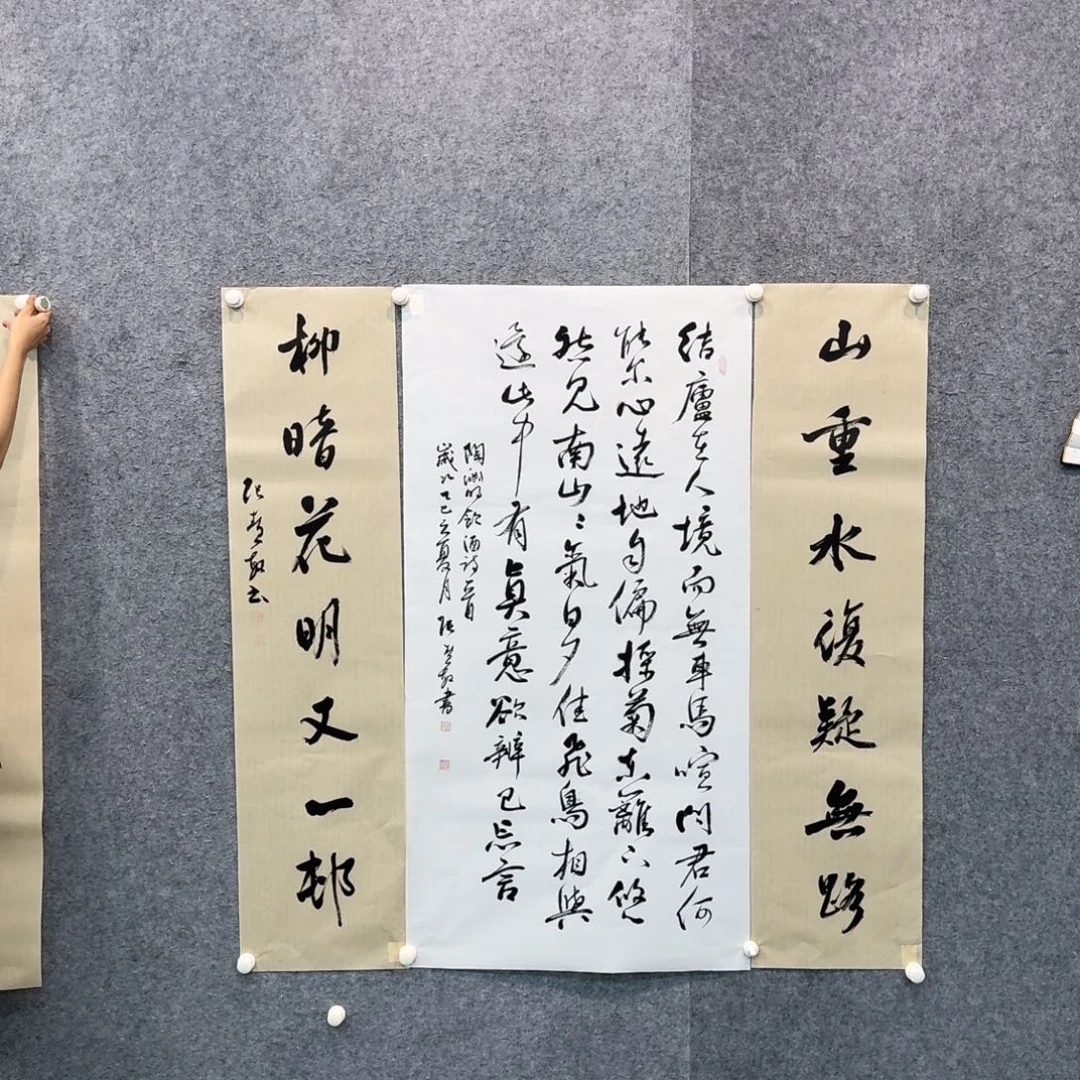 山重水復疑無路
結廬在人境而無車馬喧问君何
能尔心遠地自偏採菊东籬下悠々
然见南山々氣日夕佳飛鳥相與
還此中有眞意欲辨已忘言
陶渊明飲酒诗一首
歲次乙巳之夏月 张 書
柳暗花明又一邨
张 书